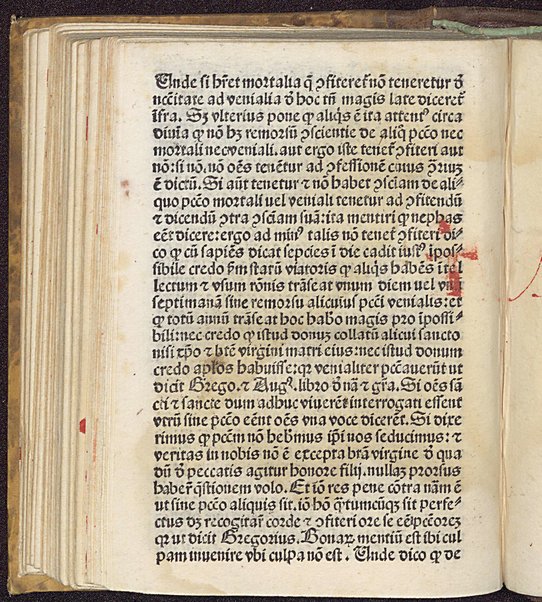 Unde si hr̃et mortalia q̃ ꝯfiteret᷑ nõ teneretur ð
ncc̃itate ad venialia ð hoc tñ magis late diceret᷑
ĩfra. Sꝫ vlterius pone ꝙ aliq̃s ẽ ita attent᷒ circa
diuĩa ꝙ nõ hꝫ remorsũ ꝯscientie de aliq̃ pcc̃o nec
mortali nec veniali. aut ergo iste tenet᷑ ꝯfiteri aut
nõ: si nõ. nõ oẽs tenẽtur ad ꝯfessionẽ cuius ꝯ̃riuꝫ
ẽ dictũ. Si aũt tenetur ⁊ nõ habet ꝯsciam de ali⸗
quo pcc̃o mortali uel veniali tenetur ad ꝯfitendũ
⁊ dicendũ ꝯtra ꝯsciam suã: ita mentiri ꝙ nephas
eẽt dicere: ergo ad min᷒ talis nõ tenet᷑ ꝯfiteri di⸗
co ꝙ cũ sapiẽs dicat sepcies ĩ die cadit iust᷒ ĩpos⸗
sibile credo ẜm statũ viatoris ꝙ aliq̃s habẽs ĩtel
lectum ⁊ vsum rõnis trãseat vnum diem uel vnã
septimanã sine remorsu alicuius pcc̃i venialis: et
ꝙ totũ annũ trãseat hoc habeo magis pro ĩpossi⸗
bili: nec credo ꝙ istud donuꝫ collatũ alicui sancto
nisi xp̃o ⁊ btẽ virgini matri eius: nec istud donum
credo apl̃os habuisse: qꝛ venialiter pcc̃auerũt ut
dicit Grego. ⁊ Aug᷒. libro ð nã ⁊ gr̃a. Si oẽs sã
cti ⁊ sancte dum adhuc viuerẽt interrogati essent
vtrũ sine pcc̃o eẽnt oẽs vna voce dicerẽt. Si dixe
rimus ꝙ pcc̃m nõ hebimus ip̃i nos seducimus: ⁊
veritas in nobis nõ ẽ excepta btã virgine ð qua
dũ ð peccatis agitur honore filij. nullaꝫ prorsus
haberi q̃stionem volo. Et iõ res pene cõtra nãm ẽ
ut sine pcc̃o aliquis sit. iõ hõ q̃ntumcũqꝫ sit perfe⸗
ctus dꝫ recogitar̃ corde ⁊ ꝯfiteri ore se eẽ pcc̃oreꝫ
qꝛ ut dicit Gregorius. Bonaꝝ mentiũ est ibi cul
pam inuenire vbi culpa nõ est. Unde dico ꝙ de